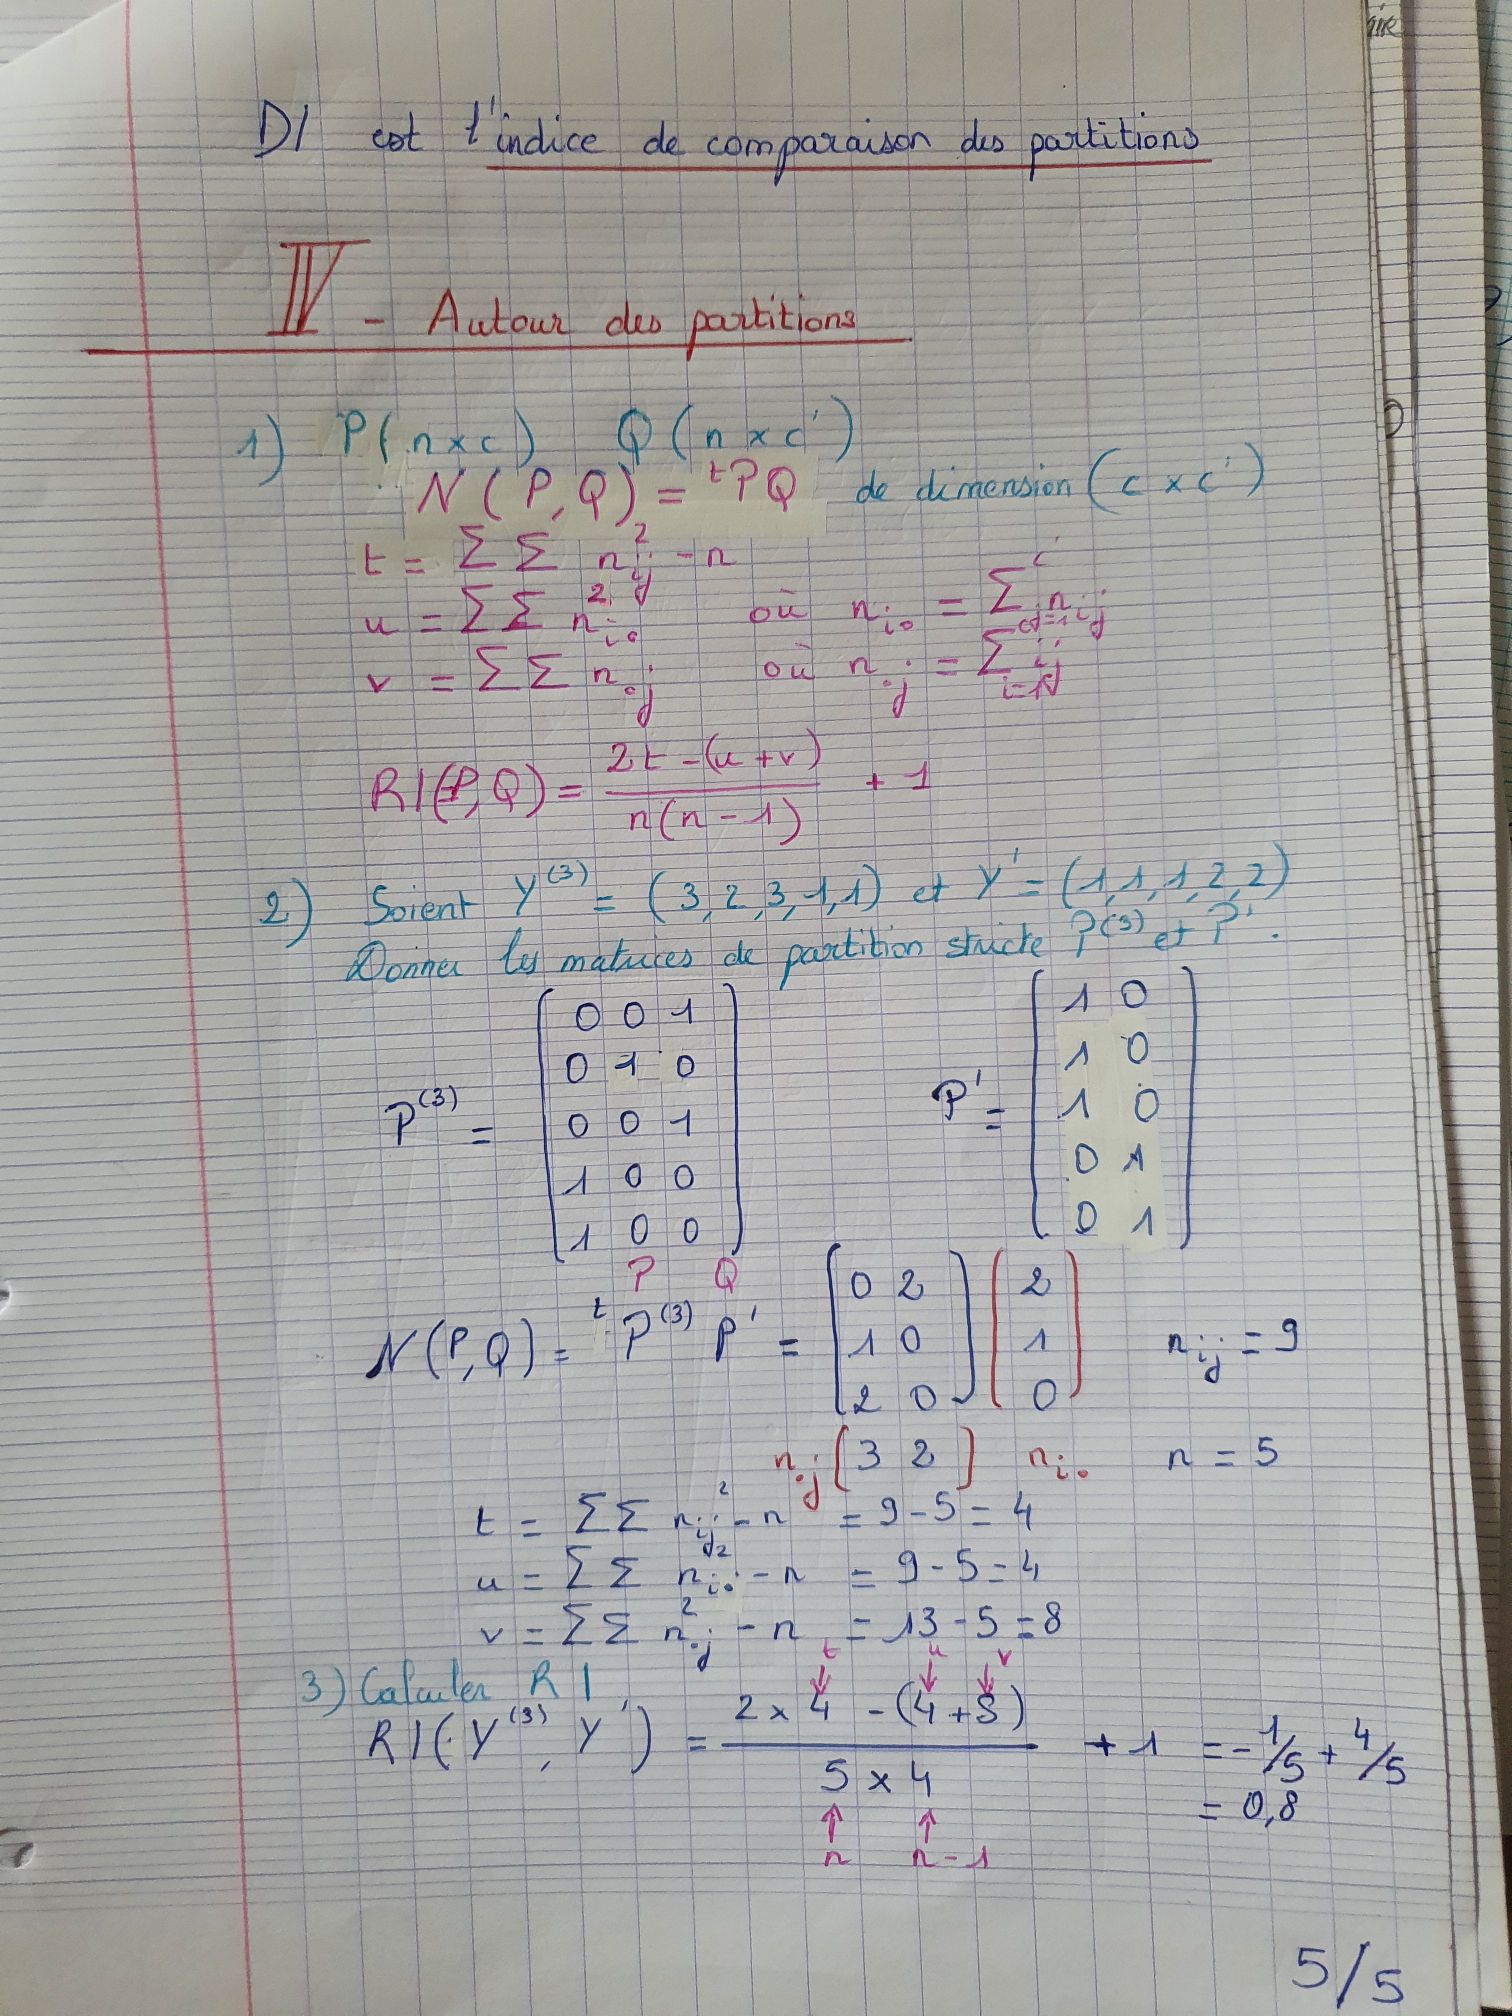 DI est l'indice de comparaison des partitions
IV - Autour des partitions
1) P(n×c) Q(n×c')
N(P,Q) = ᵗPQ de dimension (c×c')
t = ΣΣ n²ij - n
u = ΣΣ n²i• où ni• = Σ(j=1)^c' nij
v = ΣΣ n•j où n•j = Σ(i=1) ij
RI(P,Q) = (2t-(u+v)) / (n(n-1)) + 1
2) Soient Y⁽³⁾ = (3,2,3,1,1) et Y' = (1,1,1,2,2)
Donner les matrices de partition stricte P⁽³⁾ et P'.
P⁽³⁾ = P' =
0 0 1 1 0
0 1 0 1 0
0 0 1 1 0
1 0 0 0 1
1 0 0 0 1
P Q
N(P,Q) = ᵗP⁽³⁾ P' =
0 2 2
1 0 1 nij = 9
2 0 0
n•j [3 2] ni• n = 5
t = ΣΣ nij² - n = 9-5 = 4
u = ΣΣ ni•² - n = 9-5 = 4
v = ΣΣ n•j² - n = 13-5 = 8
t u v
3) Calculer RI
RI(Y⁽³⁾, Y') = (2×4 - (4+8)) / (5×4) + 1 = -1/5 + 4/5
= 0,8
n n-1
5/5